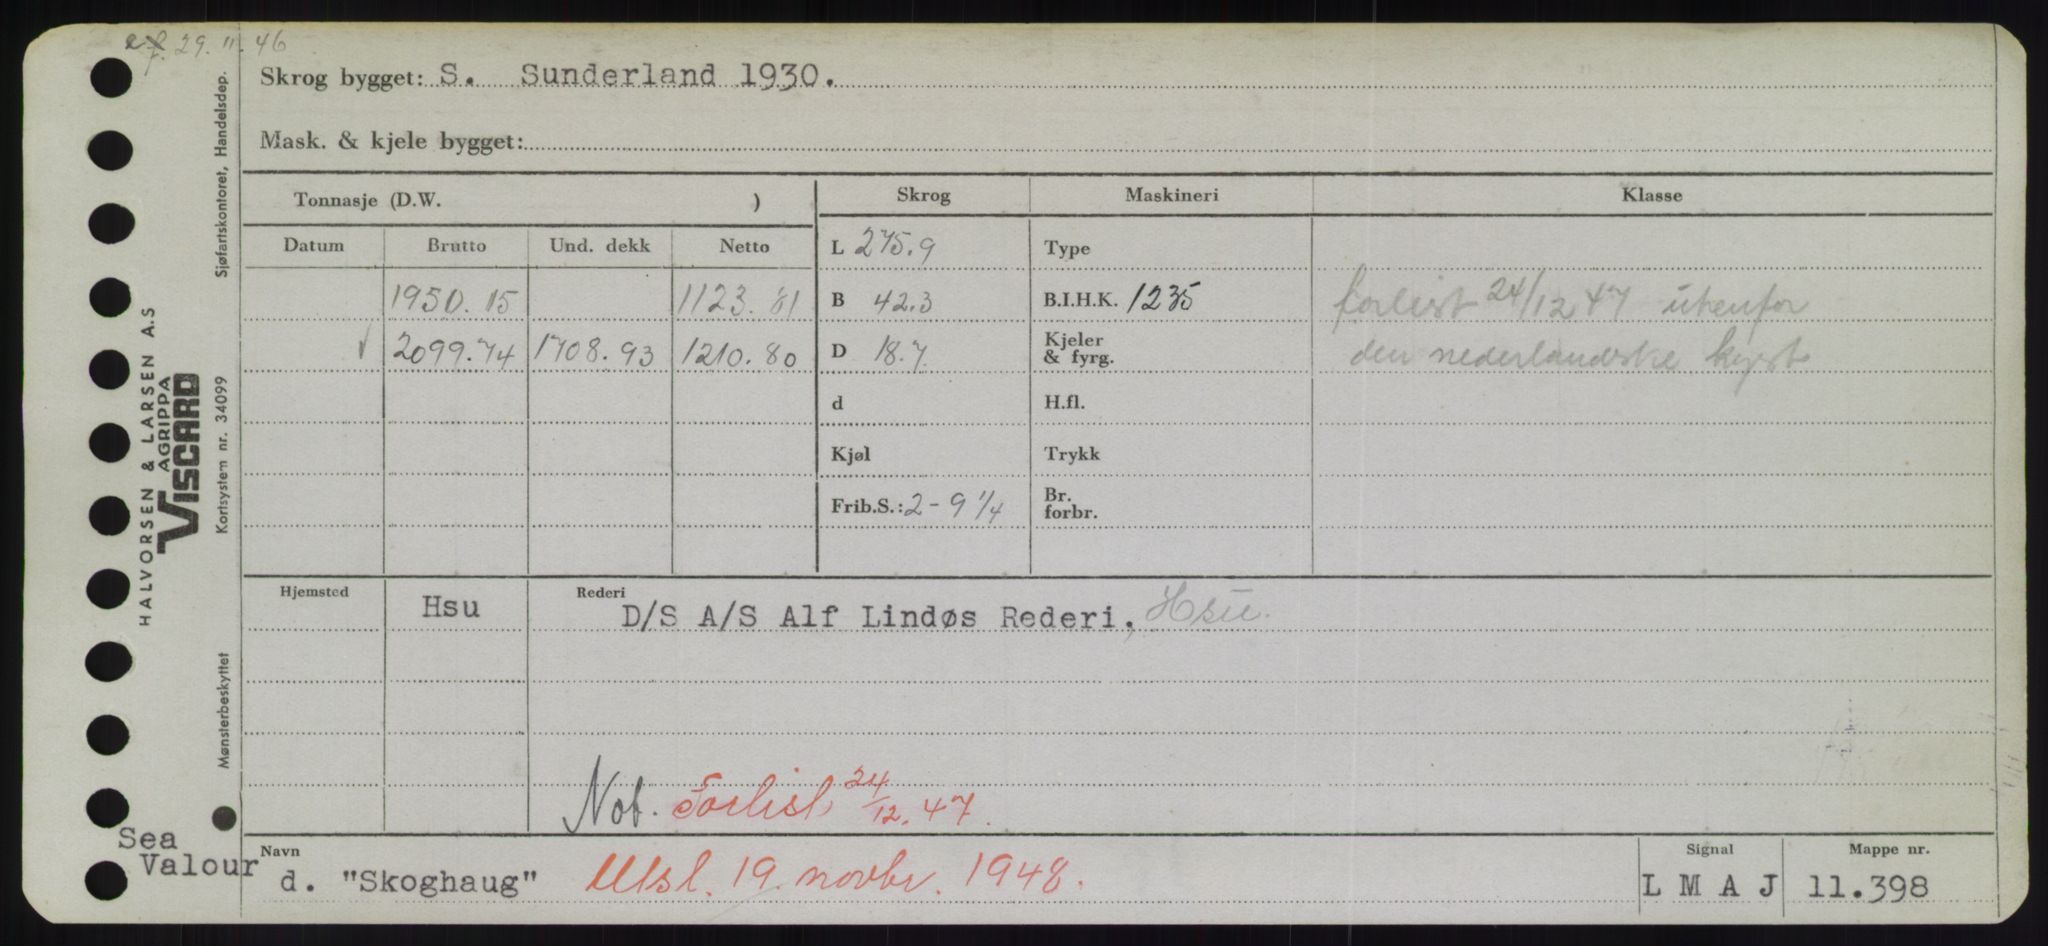 29.11.46
Skrog bygget: S. Sunderland 1930.
Mask. & kjele bygget:
Tonnasje (D.W. )
Skrog
Maskineri
Klasse
Datum Brutto Und. dekk Netto
L 275.9
Type
1950.15 1123.81
B 42.3
B.I.H.K. 1235
forlist 24/12 47 utenfor
√ 2099.74 1708.93 1210.80
D 18.7
Kjeler
& fyrg.
den nederlandske kyst
d
H.fl.
Kjøl
Trykk
Frib.S.: 2 - 9 1/4
Br.
forbr.
Hjemsted
Hsu
Rederi
D/S A/S Alf Lindøs Rederi, Hsu.
Not. Forlist 24/12.47.
Sea
Valour
Navn
d. "Skoghaug"
Utsl. 19. novbr. 1948.
Signal
L M A J
Mappe nr.
11.398
HALVORSEN & LARSEN A.S
AGRIPPA
VISCARD
Mønsterbeskyttet Kortsystem nr. 34099 Sjøfartskontoret, Handelsdep.